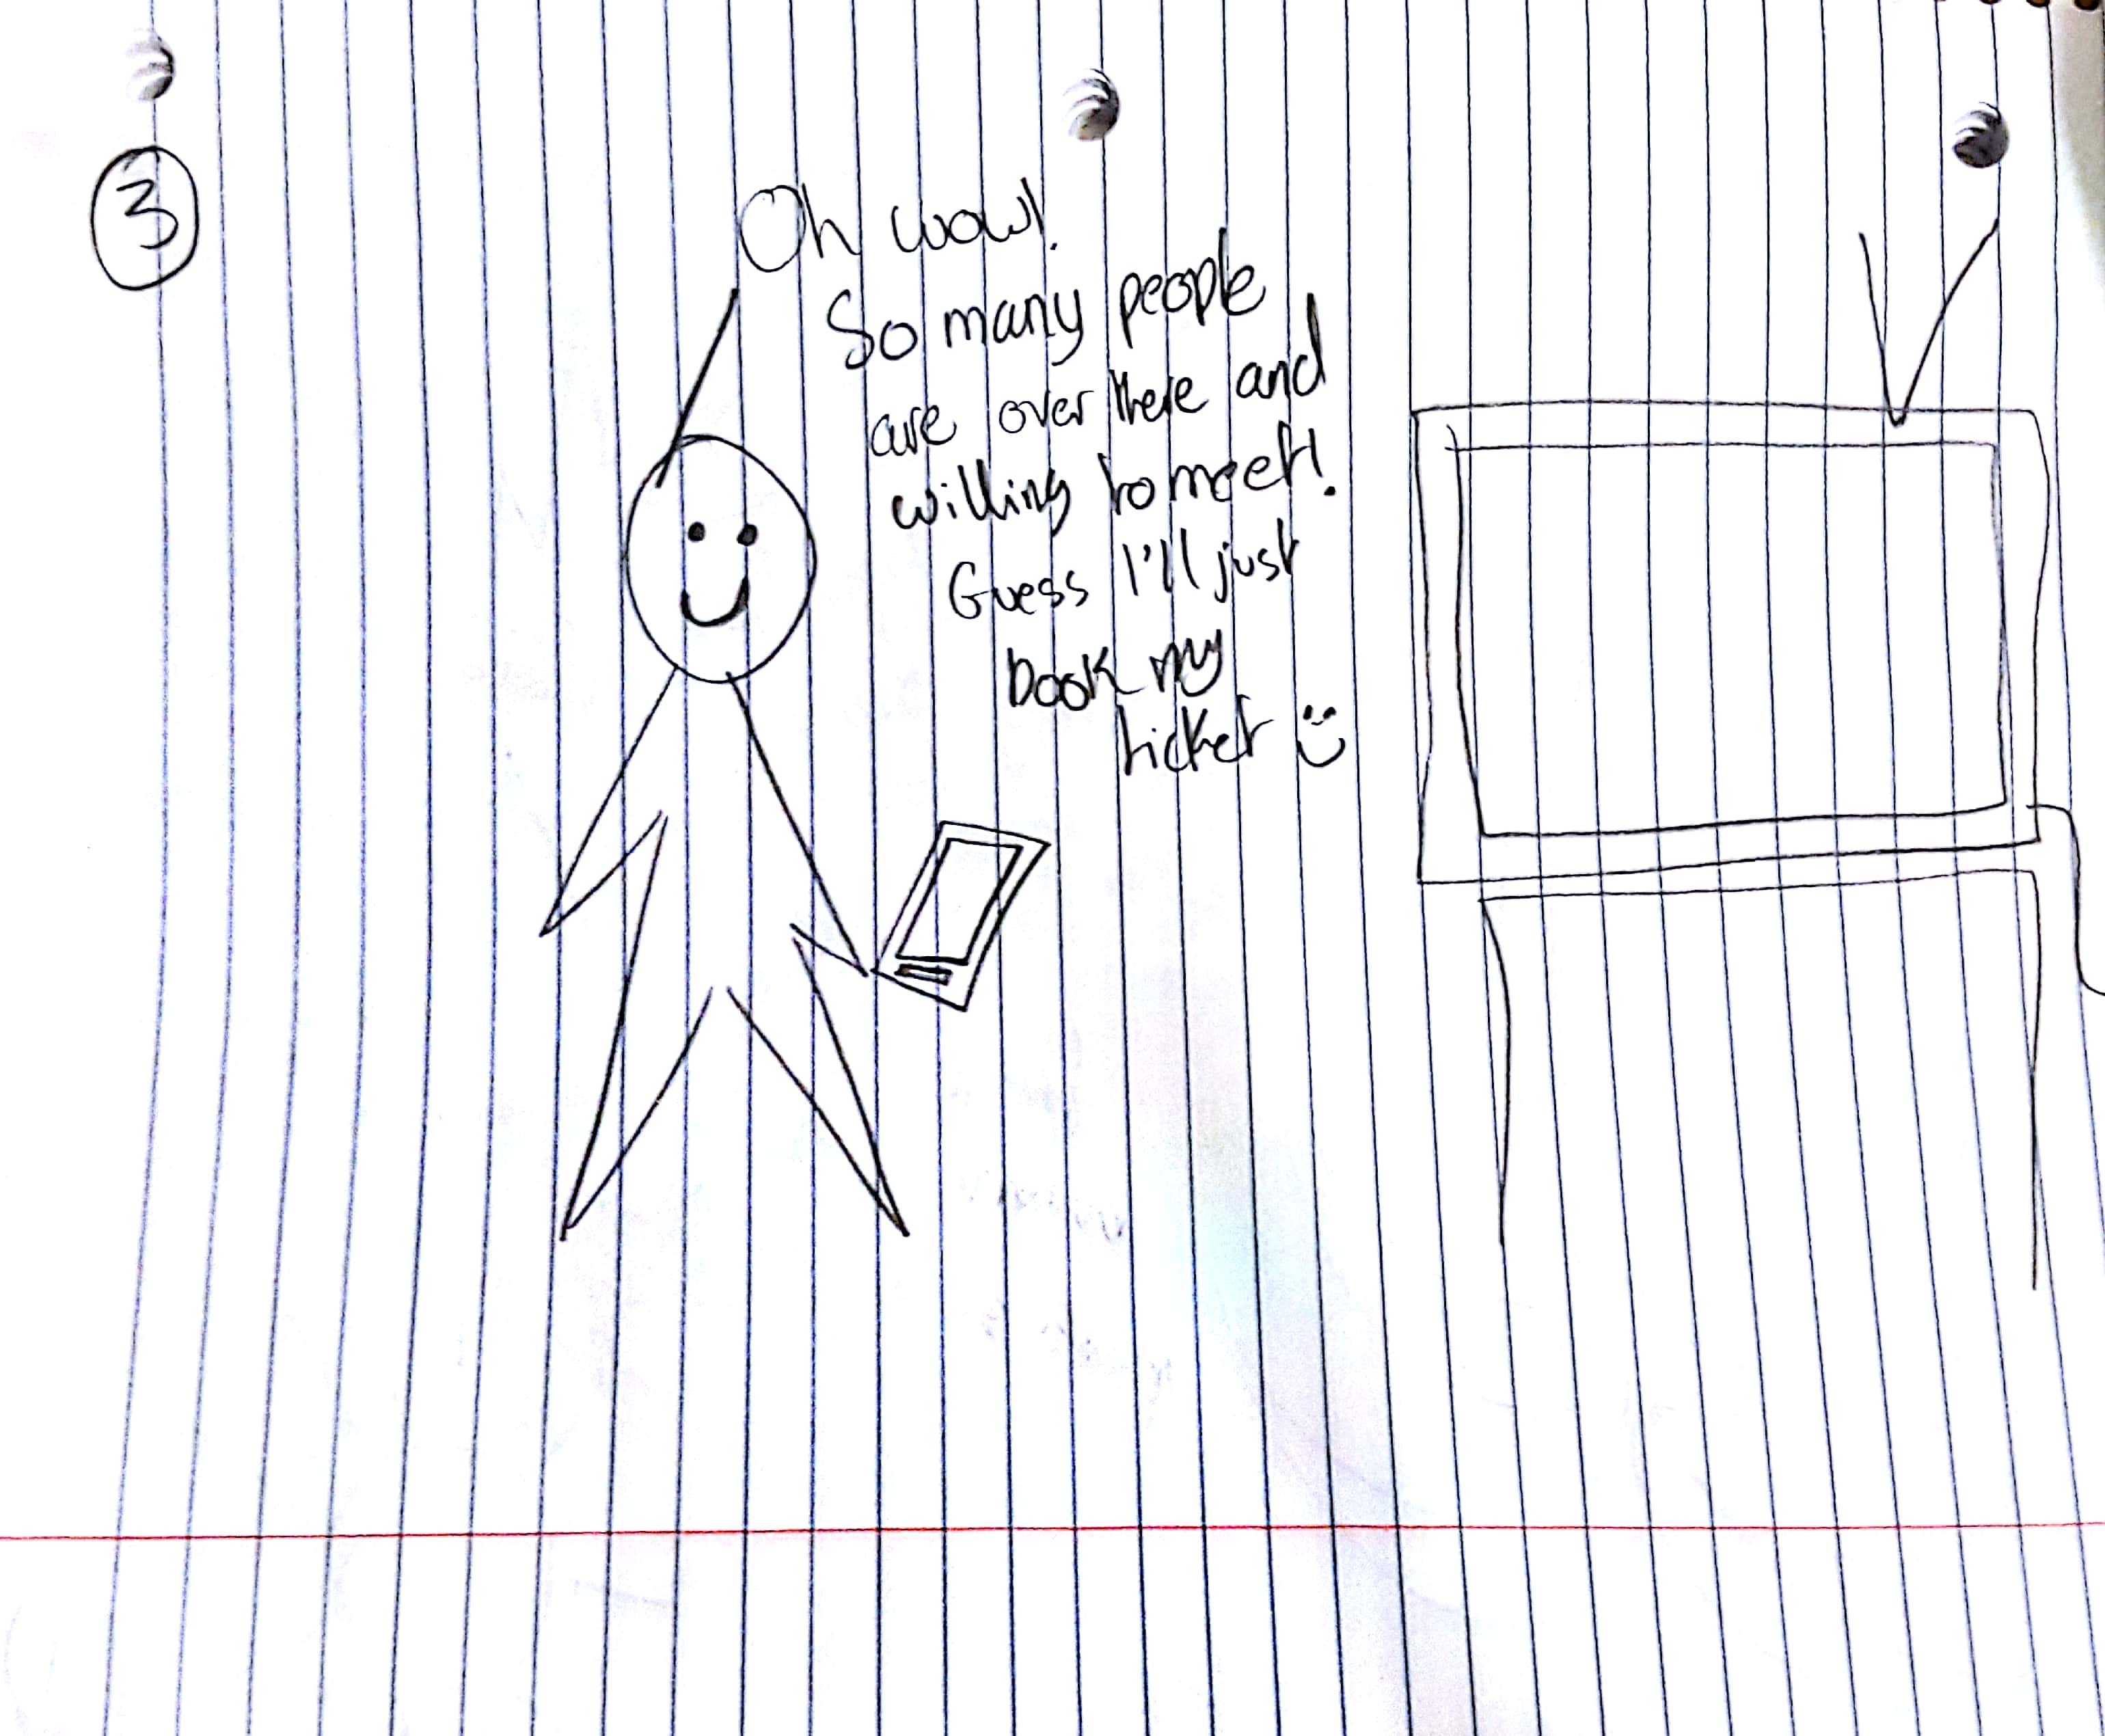 3
Oh wow!
So many people
are over there and
willing to meet!
Guess I'll just
book my
ticket